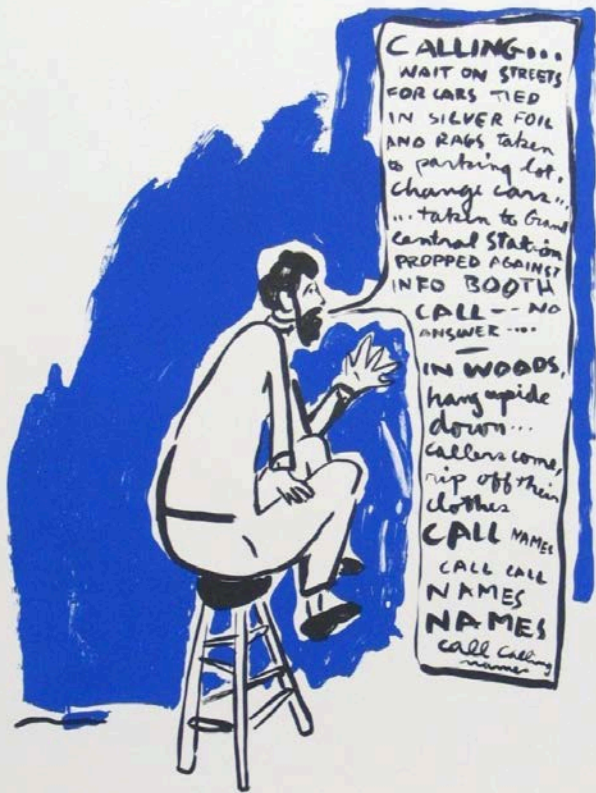 CALLING...
WAIT ON STREETS
FOR CARS TIED
IN SILVER FOIL
AND RAGS taken
to parking lot,
change cars...
... taken to Grand
Central Station
PROPPED AGAINST
INFO BOOTH
CALL -- NO
ANSWER ...
IN WOODS,
hang upide
down...
callers come,
rip off their
clothes
CALL NAMES
CALL CALL
NAMES
NAMES
call calling
names